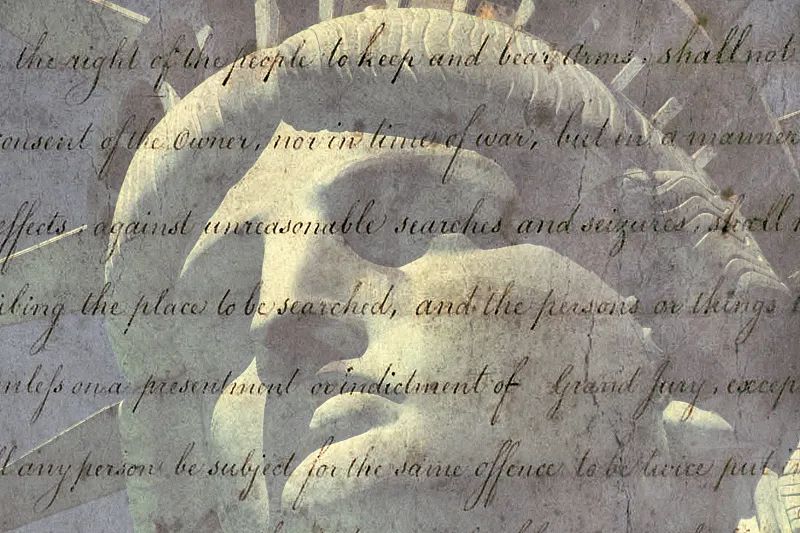 the right of the people to keep and bear Arms, shall not
consent of the Owner, nor in time of war, but in a manner
effects, against unreasonable searches and seizures, shall
the place to be searched, and the persons or things
on a presentment or indictment of Grand Jury, except
any person be subject for the same offence to be twice put in